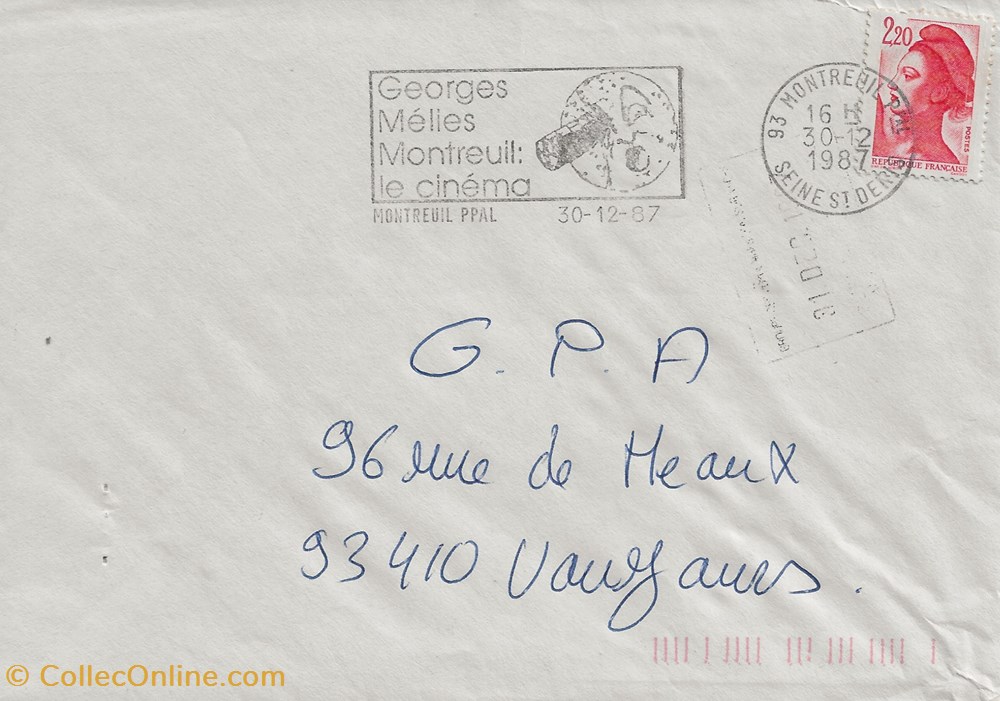 Georges
Mélies
Montreuil:
le cinéma
MONTREUIL PPAL 30-12-87
93 MONTREUIL PPAL
16 H
30-12
1987
SEINE ST DENIS
2,20
POSTES
REPUBLIQUE FRANÇAISE
31 DEC
G. P. A
96 rue de Meaux
93410 Vaujours.
© CollecOnline.com